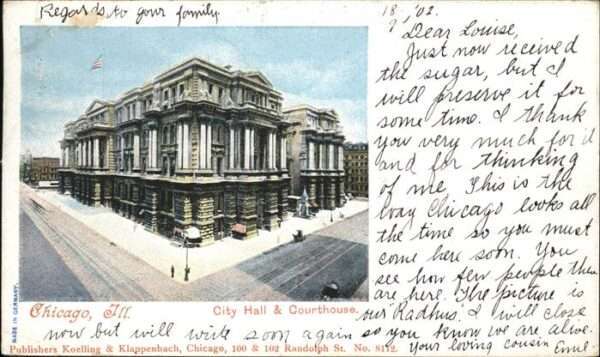 Regards to your family
18/9 '02.
Dear Louise,
Just now received
the sugar, but I
will preserve it for
some time. I thank
you very much for it
and for thinking
of me. This is the
way Chicago looks all
the time so you must
come here soon. You
see how few people then
are here. The picture is
our Radhus. I will close
now but will write soon again so you know we are alive.
your loving cousin
Emil.
Chicago, Ill.
City Hall & Courthouse.
MADE IN GERMANY.
Publishers Koelling & Klappenbach, Chicago, 100 & 102 Randolph St. No. 8112.